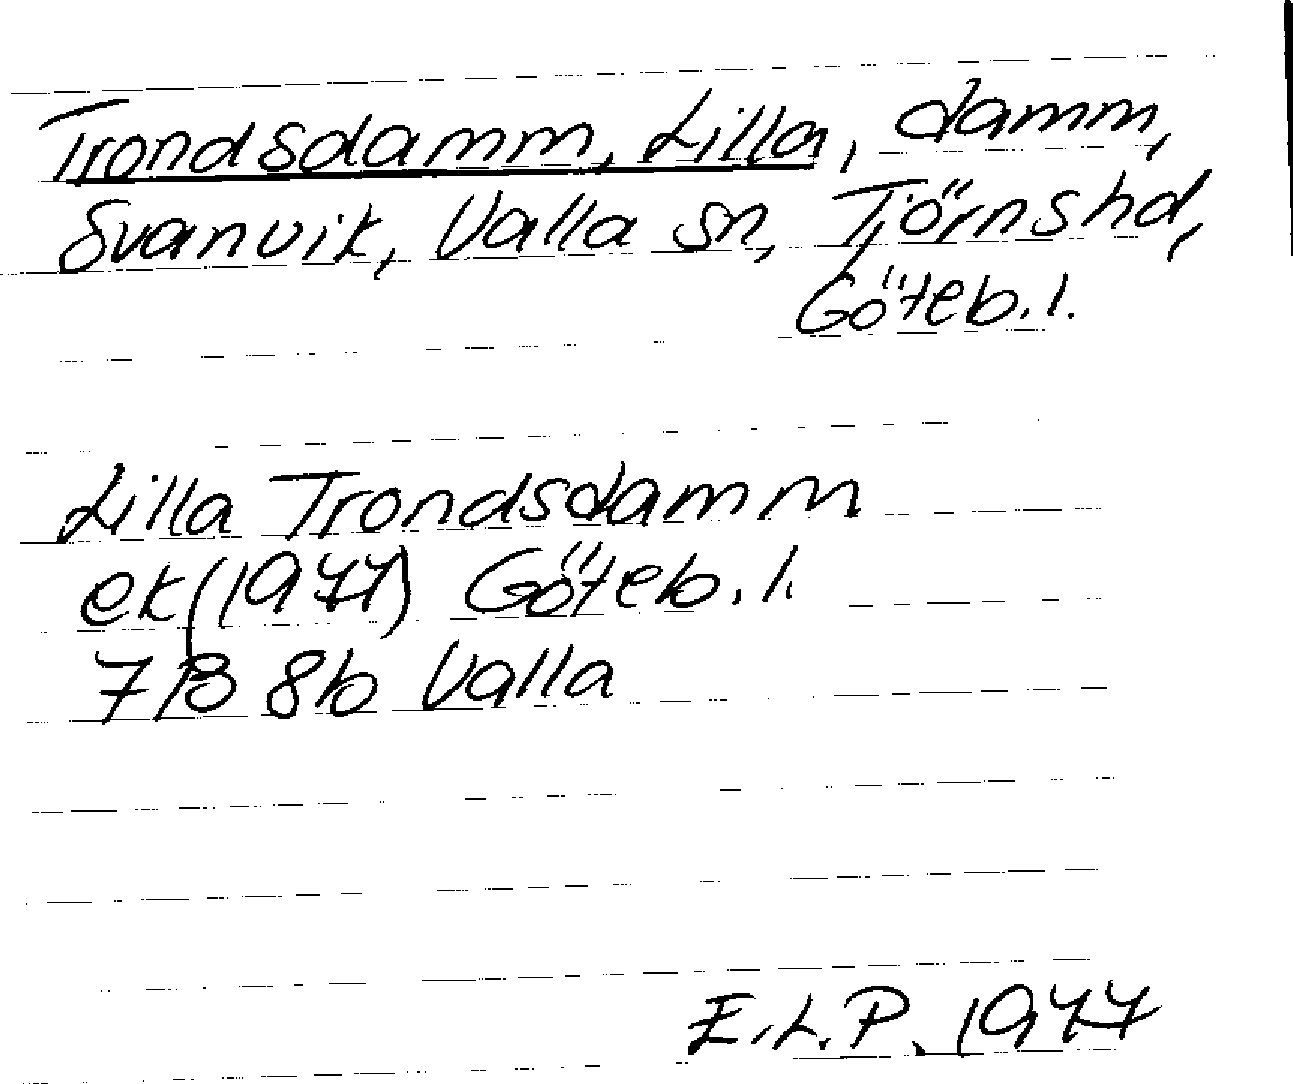 Trondsdamm, Lilla, damm,
Svanvik, Valla sn, Tjörnshd,
Göteb. l.
Lilla Trondsdamm
ek (1977) Göteb. l.
7B 8b Valla
E.L.P. 1977